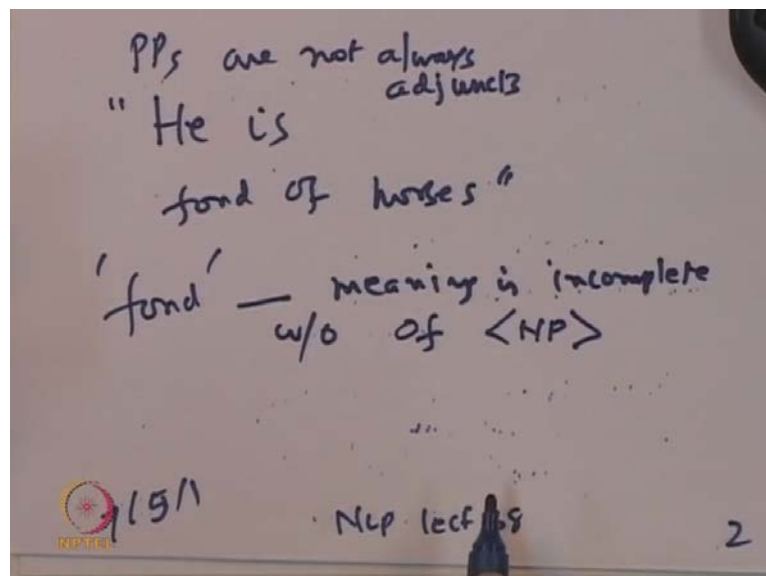 PPs are not always
adjuncts
"He is
fond of horses"
'fond' — meaning is incomplete
w/o of <NP>
/5/1
NPTEL
NLP lect 8
2